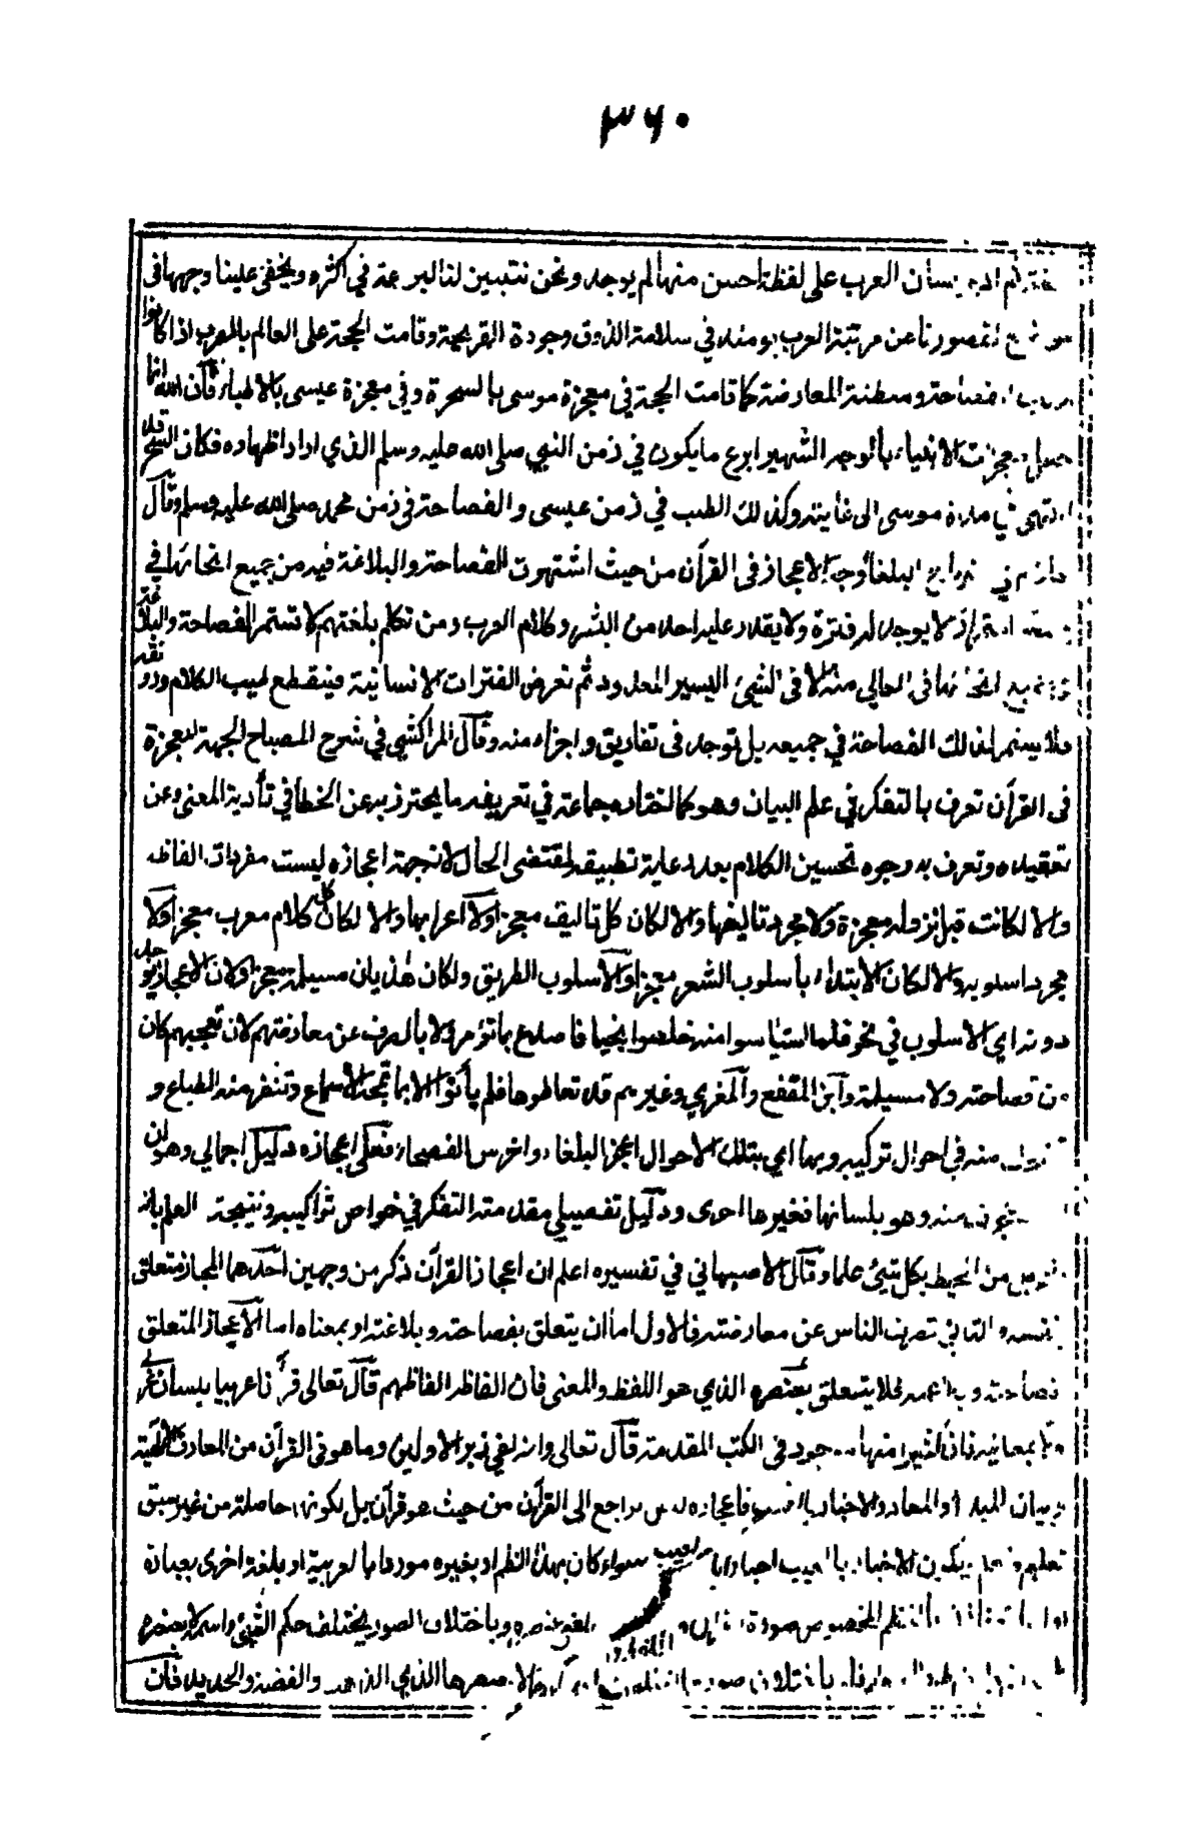 ٣٦٠
لسان العرب على لفظة احسن منها لم يوجد ونحن نتبين لنا البراعة في اكثره ويخفى علينا وجهها في
لقصورنا عن مرتبة العرب يومئذ في سلامة الذوق وجودة القريحة وقامت الحجة على العالم بالعرب اذ كانوا
ومظنة المعارضة كما قامت الحجة في معجزة موسى بالسحرة وفي معجزة عيسى بالاطباء فان الله انما
جعل معجزات الانبياء بالوجه الشهير ابرع ما يكون في زمن النبي صلى الله عليه وسلم الذي اراد اظهاره فكان السحر قد
انتهى في مدة موسى الى غايته وكذلك الطب في زمن عيسى والفصاحة في زمن محمد صلى الله عليه وسلم وقال
حازم في البلغاء وجه الاعجاز في القرآن من حيث استمرت الفصاحة والبلاغة فيه من جميع انحائها في
لا يوجد له فترة ولا يقدر عليه احد من البشر وكلام العرب ومن تكلم بلغتهم لا تستمر الفصاحة والبلاغة
في جميع انحائها في العالي منه الا في الشيئ اليسير المعدود ثم تعرض الفترات الانسانية فينقطع طيب الكلام ورونقه
فلا يستمر لذلك الفصاحة في جميعه بل توجد في تفاريق واجزاء منه وقال المراكشي في شرح المصباح الجهة المعجزة
في القرآن تعرف بالتفكر في علم البيان وهو كما اختاره جماعة في تعريفه ما يحترز به عن الخطا في تأدية المعنى وعن
تعقيده وتعرف به وجوه تحسين الكلام بعد رعاية تطبيقه لمقتضى الحال لان جهة اعجازه ليست مفردات الفاظه
والا لكانت قبل نزوله معجزة ولا مجرد تاليفها والا لكان كل تاليف معجزا ولا اعرابها والا لكان كل كلام معرب معجزا ولا
مجرد اسلوبه والا لكان الابتداء بأسلوب الشعر معجزا والاسلوب الطريق ولكان هذيان مسيلمة معجزا ولان الاعجاز يوجد
دونه اي الاسلوب في نحو فلما استيأسوا منه خلصوا نجيا فاصدع بما تؤمر ولا بالصرف عن معارضتهم لان تعجبهم كان
من فصاحته ولا مسيلمة وابن المقفع والمغربي وغيرهم قد تعاطوها فلم يأتوا الا بما تمجه الاسماع وتنفر منه الطباع و
منه في احوال تركيبه وبها اي بتلك الاحوال اعجز البلغاء واخرس الفصحاء فعلى اعجازه دليل اجمالي وهو ان
عنه وهو بلسانها فغيرها احرى ودليل تفصيلي مقدمته التفكر في خواص تراكيبه ونتيجته العلم بانه
من المحيط بكل شيئ علما وقال الاصبهاني في تفسيره اعلم ان اعجاز القرآن ذكر من وجهين احدهما اعجاز متعلق
بنفسه والثاني بصرف الناس عن معارضته فالاول اما ان يتعلق بفصاحته وبلاغته او بمعناه اما الاعجاز المتعلق
بفصاحته وبلاغته فلا يتعلق بعنصره الذي هو اللفظ والمعنى فان الفاظه الفاظهم قال تعالى قرآنا عربيا بلسان عربي
ولا بمعانيه فان كثيرا منها موجود في الكتب المقدمة قال تعالى وانه لفي زبر الاولين وما هو في القرآن من المعارف الالهية
وبيان المبدأ والمعاد والاخبار بالغيب فاعجازه ليس براجع الى القرآن من حيث هو قرآن بل لكونها حاصلة من غير سبق
تعليم وتعلم ويكون الاخبار بالغيب اخبارا بالغيب سواء كان بهذا النظم او بغيره موردا بالعربية او بلغة اخرى بعبارة
النظم المخصوص صورة وباختلاف الصور يختلف حكم الشيئ واسمه لا بعنصره
باختلاف والفضة والحديد فان